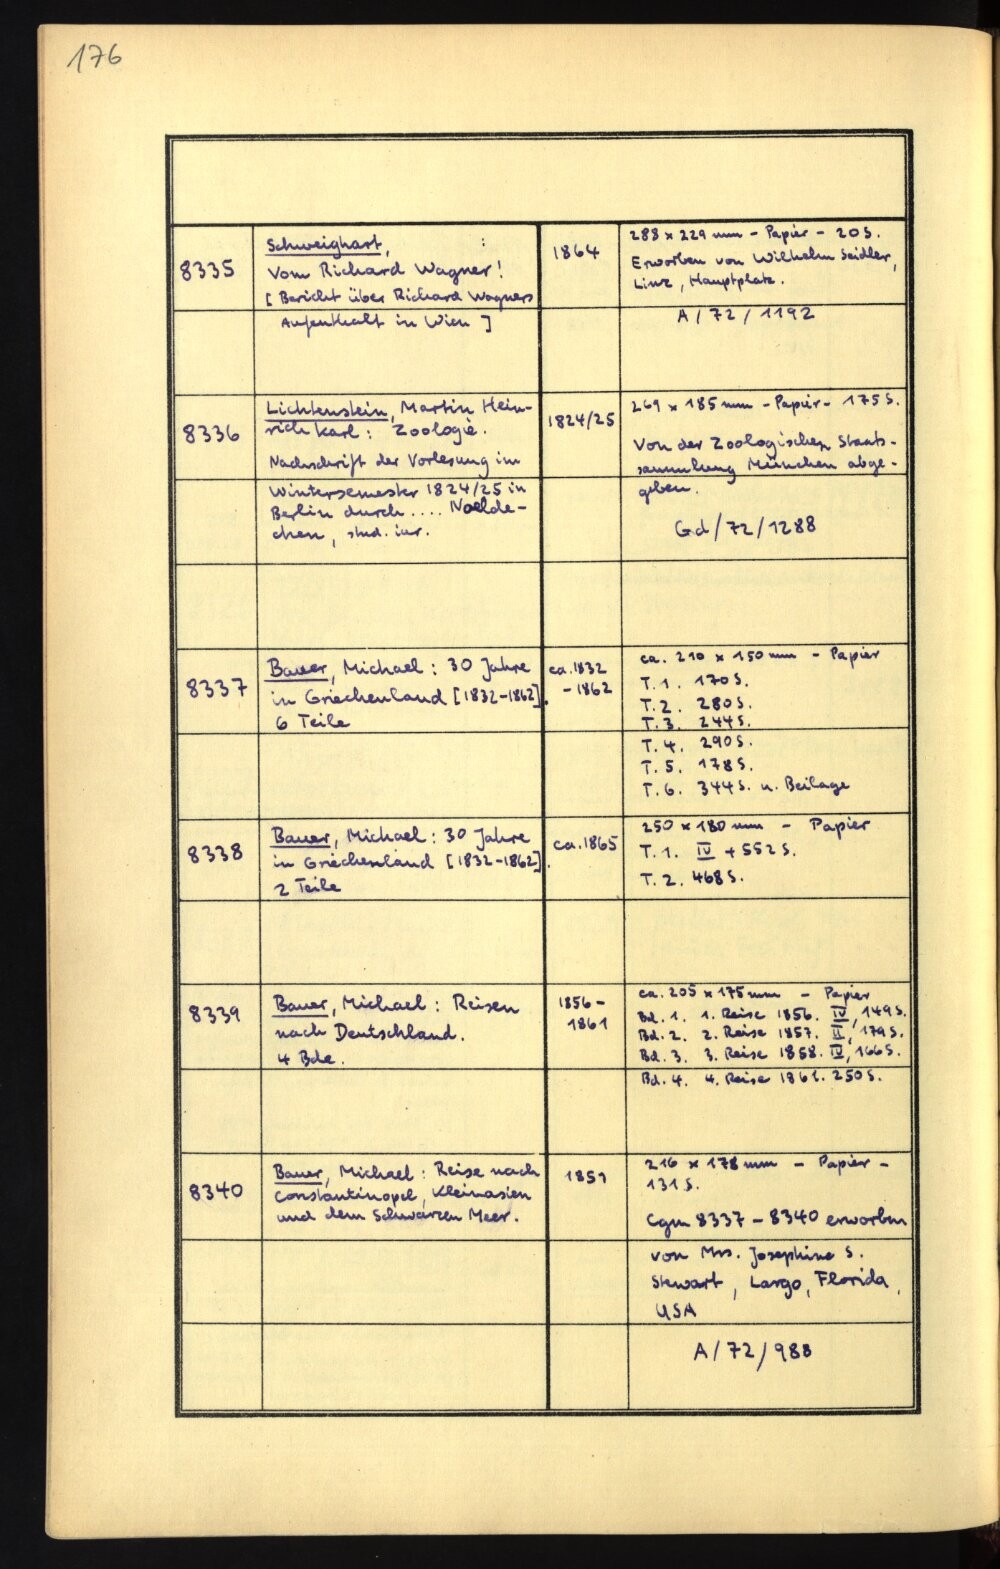 176
8335
Schweighart, :
Vom Richard Wagner!
[Bericht über Richard Wagners
Aufenthalt in Wien]
1864
288 x 229 mm - Papier - 20 S.
Erworben von Wilhelm Seidler,
Linz, Hauptplatz.
A/72/1192
8336
Lichtenstein, Martin Hein-
rich Karl: Zoologie.
Nachschrift der Vorlesung im
Wintersemester 1824/25 in
Berlin durch .... Noelde-
chen, stud. iur.
1824/25
269 x 185 mm - Papier - 175 S.
Von der Zoologischen Staats-
sammlung München abge-
geben.
Gd/72/1288
8337
Bauer, Michael: 30 Jahre
in Griechenland [1832-1862].
6 Teile
ca. 1832
- 1862
ca. 210 x 150 mm - Papier
T. 1. 170 S.
T. 2. 280 S.
T. 3. 244 S.
T. 4. 290 S.
T. 5. 178 S.
T. 6. 344 S. u. Beilage
8338
Bauer, Michael: 30 Jahre
in Griechenland [1832-1862].
2 Teile
ca. 1865
250 x 180 mm - Papier
T. 1. IV + 552 S.
T. 2. 468 S.
8339
Bauer, Michael: Reisen
nach Deutschland.
4 Bde.
1856-
1861
ca. 205 x 175 mm - Papier
Bd. 1. 1. Reise 1856. IV, 149 S.
Bd. 2. 2. Reise 1857. 179 S.
Bd. 3. 3. Reise 1858. IV, 166 S.
Bd. 4. 4. Reise 1861. 250 S.
8340
Bauer, Michael: Reise nach
Constantinopel, Kleinasien
und dem Schwarzen Meer.
1851
216 x 178 mm - Papier -
131 S.
Cgm 8337 - 8340 erworben
von Mrs. Josephine S.
Stewart, Largo, Florida,
USA
A/72/988